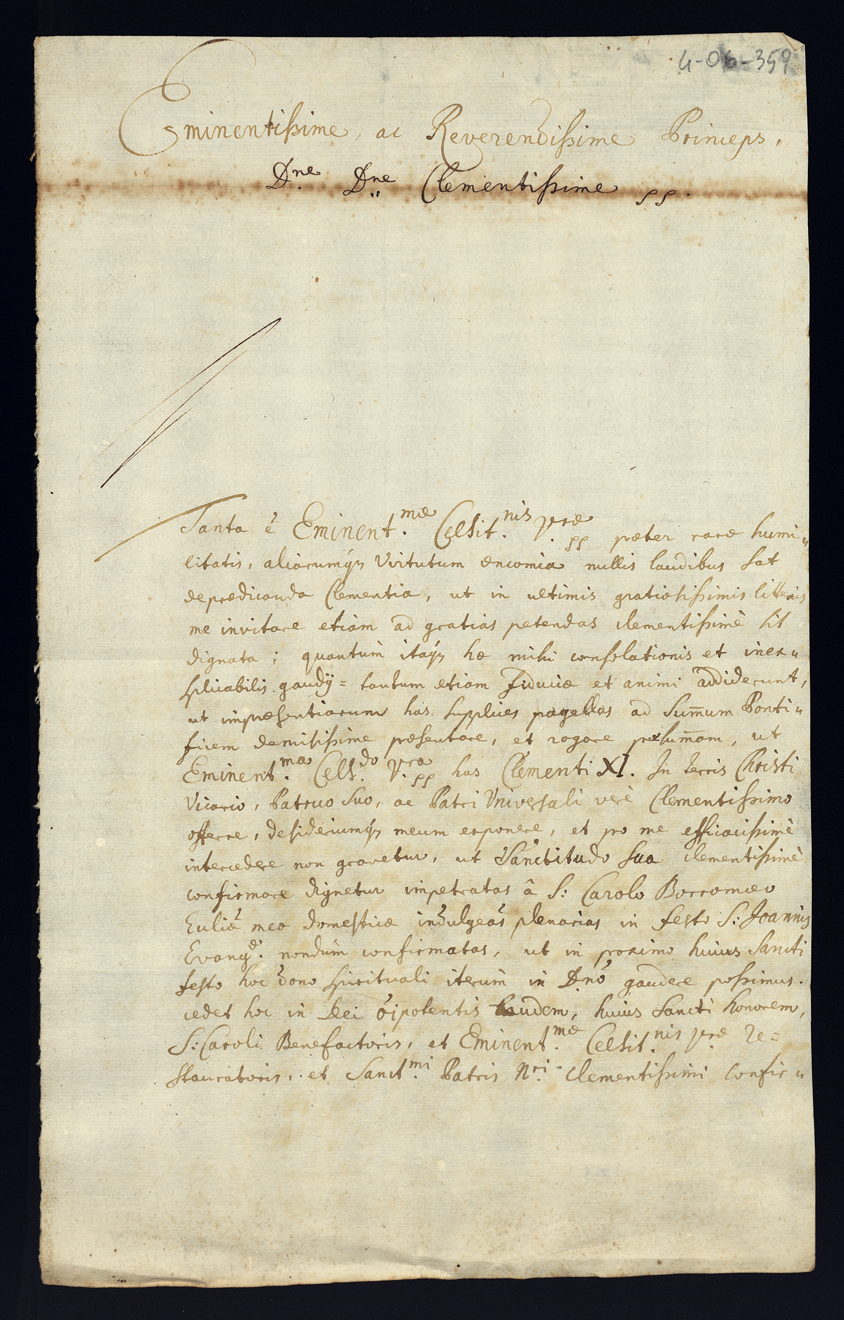 4-06-359
Eminentissime, ac Reverendissime Princeps,
Dne Dne Clementissime
Tanta ē Eminent.mæ Celsit.nis Vræ præter raræ humi„
litatis, aliarumq́ Virtutum encomia nullis laudibus sat
deprædicanda Clementia, ut in ultimis gratiosissimis litteris
me invitare etiam ad gratias petendas clementissimè sit
dignata; quantum itaq́ hæ mihi consolationis et inex„
plicabilis gaudij = tantum etiam fiduciæ et animi addiderunt,
ut impræsentiarum has supplices pagellas ad Sum̄um Ponti„
ficem demississime præsentare, et rogare præsum̄am, ut
Eminent.ma Cels.do Vra has Clementi XI. In terris Christi
Vicario, Patruo Suo, ac Patri Universali verè Clementissimo
offerre, desideriumq́ meum exponere, et pro me efficacissimè
intercedere non gravetur, ut Sanctitudo Sua clementissimè
confirmare dignetur impetratas â S: Carolo Borromæo
meæ domesticæ indulgēas plenarias in festo S: Joannis
Evang. nondum confirmatas, ut in proximo huius Sancti
festo hoc dono spirituali iterum in Dnō gaudere possimus.
cedet hoc in Dei ōipotentis laudem, huius Sancti honorem,
S: Caroli Benefactoris, et Eminent.mæ Celsit.nis Vræ Re=
stauratoris, et Sanct.mi Patris Nri Clementissimi Confir„